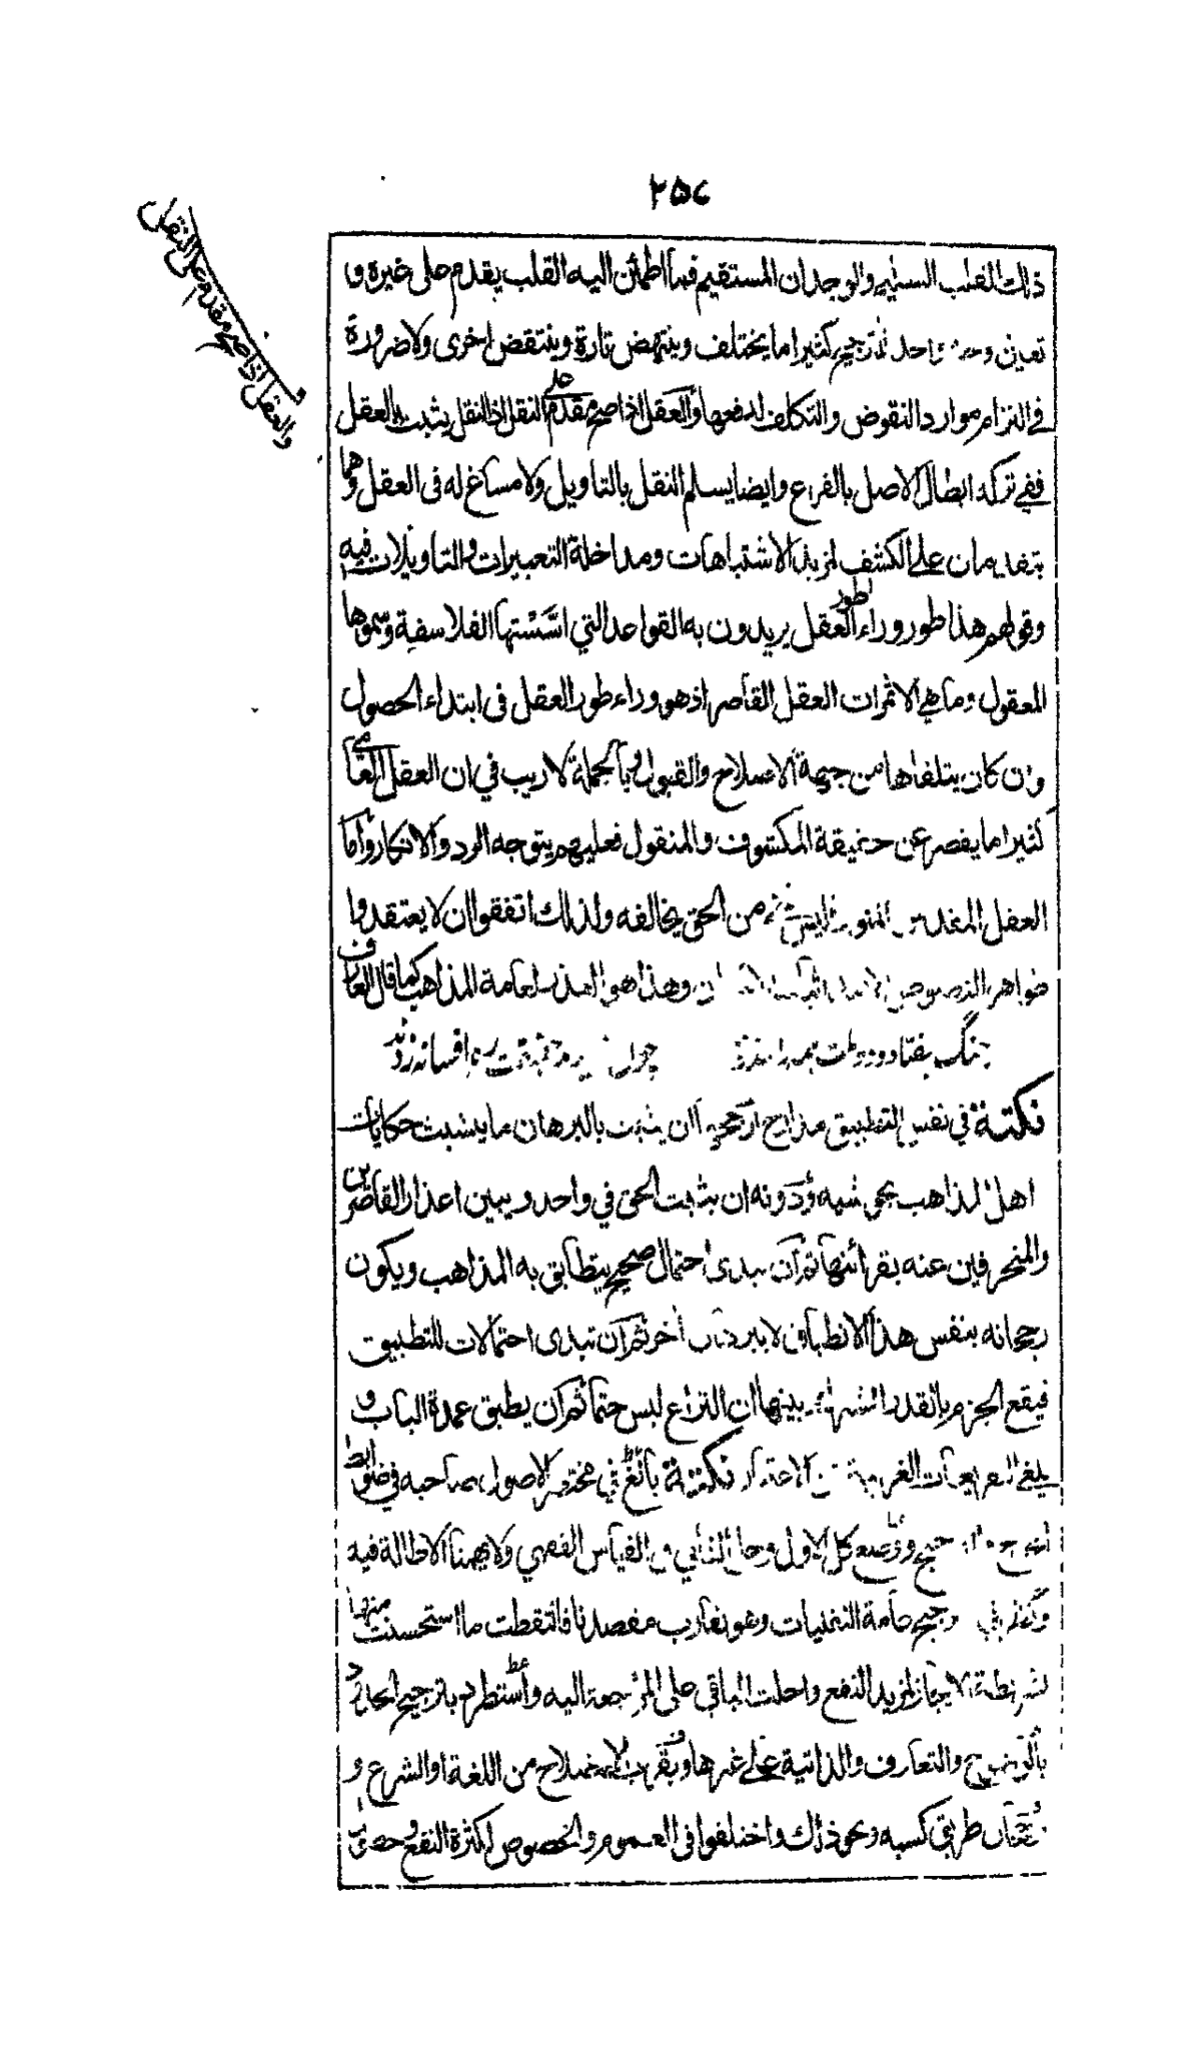 ٢٥٧
والعقل اذا صح مقدم على النقل
ذلك القلب السليم والوجدان المستقيم فما اطمأن اليه القلب يقدم على غيره و
تعين وجه واحد للترجيح كثيرا ما يختلف وينتهض تارة وينتقض اخرى ولا ضرورة
في التزام موارد النقوض والتكلف لدفعها والعقل اذا صح مقدم على النقل اذ النقل يثبت بالعقل
ففي تركه ابطال الاصل بالفرع وايضا يسلم النقل بالتاويل ولا مساغ له في العقل وهما
يتقدمان على الكشف لمزيد الاشتباهات ومداخلة التعبيرات والتاويلات فيه
وقولهم هذا طور وراء طور العقل يريدون به القواعد التي اسَّسَتها الفلاسفة وسموها
المعقول وما هي الا ثمرات العقل القاصر اذ هو وراء طور العقل في ابتداء الحصول
وان كان يتلقاها من جهة الاصلاح والقبول وبالجملة لا ريب في ان العقل العامي
كثيرا ما يقصر عن حقيقة المكشوف والمنقول فعليهم يتوجه الرد والانكار واما
العقل المنور فليس شئ من الحق يخالفه ولذلك اتفقوا ان لا يعتقدوا
ظواهر النصوص وهذا هو العذر لعامة المذاهب كما قال العارف
جنگ هفتاد و دو ملت همه را عذر بنه چون ندیدند حقیقت ره افسانه زدند
نكتة في نفس التطبيق مدارج ارجحها ان يثبت بالبرهان ما يشبث حكايات
اهل المذاهب بحواشيه ودونه ان يثبت الحق في واحد ويبين اعذار القاصرين
والمنحرفين عنه بقرائنها ثم ان يبدى احتمال صحيح يتطابق به المذاهب ويكون
رجحانه بنفس هذا الانطباق لا ببرهان اخر ثم ان تبدى احتمالات للتطبيق
فيقع الجزم بالقدر المشترك بينها ان النزاع ليس حتما ثم ان يطبق عمدة الباب و
يلغى الغريبة عن الاعتبار نكتة بالغ في مختصر الاصول صاحبه في ضوابط
وضع كل الاول وحال الثاني في القياس الفقهي ولا يهمنا الاطالة فيه
ترجيح عامة النقليات وهو تقارب مقصدنا فالتقطت ما استحسنت منها
لشريطة الايجاز لمزيد النفع واحلت الباقي على المراجعة اليه واستطرد بترجيح الحدود
والتعارف والذاتية على غيرها وبقرب الاصطلاح من اللغة او الشرع و
طريق كسبه ونحو ذلك واختلفوا في العموم والخصوص لكثرة النفع و